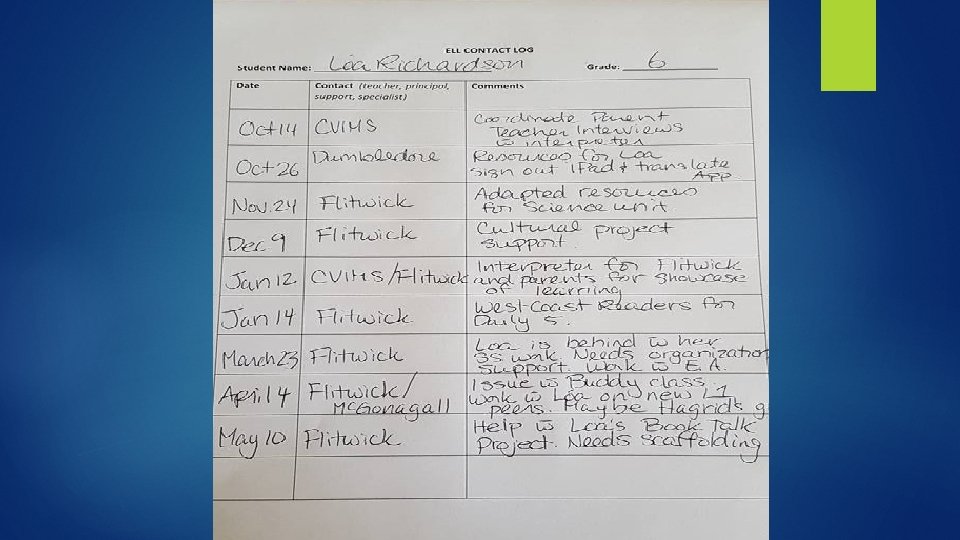 ELL CONTACT LOG
Student Name: Loa Richardson Grade: 6
Date Contact (teacher, principal, support, specialist) Comments
Oct 14 CVIMS Coordinate Parent
Teacher Interviews
w̄ interpreter
Oct 26 Dumbledore Resources for Loa
sign out iPad & translate
App
Nov. 24 Flitwick Adapted resources
for Science unit
Dec 9 Flitwick Cultural project
support.
Jan 12 CVIMS/Flitwick Interpreter for Flitwick
and parents for showcase
of learning
Jan 14 Flitwick West Coast Readers for
Daily 5.
March 23 Flitwick Loa is behind w̄ her
SS work. Needs organization
support. Work w̄ E.A.
April 4 Flitwick/ Issue w̄ Buddy class.
McGonagall work w̄ Loa on new L1
peers. Maybe Hagrid's g
May 10 Flitwick Help w̄ Loa's Book Talk
Project. Needs scaffolding